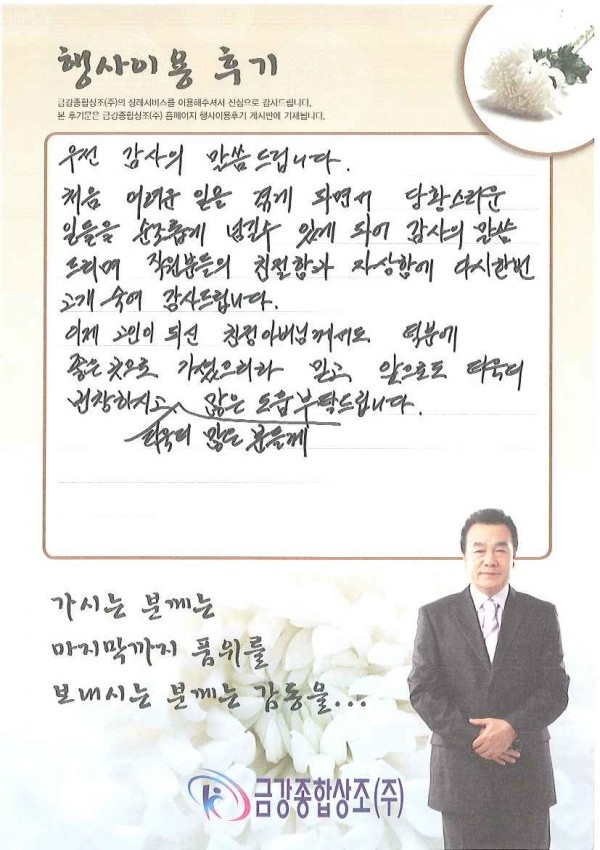 행사이용 후기
금강종합상조(주)의 장례서비스를 이용해주셔서 진심으로 감사드립니다.
본 후기문은 금강종합상조(주) 홈페이지 행사이용후기 게시판에 기재됩니다.
우선 감사의 말씀드립니다.
처음 어려운 일을 겪게 되면서 당황스러운
일들을 순조롭게 넘길수 있게 되어 감사의 말씀
드리며 직원분들의 친절함과 자상함에 다시한번
고개 숙여 감사드립니다.
이제 고인이 되신 친정아버님께서도 덕분에
좋은 곳으로 가셨으리라 믿고 앞으로도 더욱더
번창하시고 많은 도움 부탁드립니다.
더욱더 많은 분들께
가시는 분께는
마지막까지 품위를
보내시는 분께는 감동을...
금강종합상조(주)